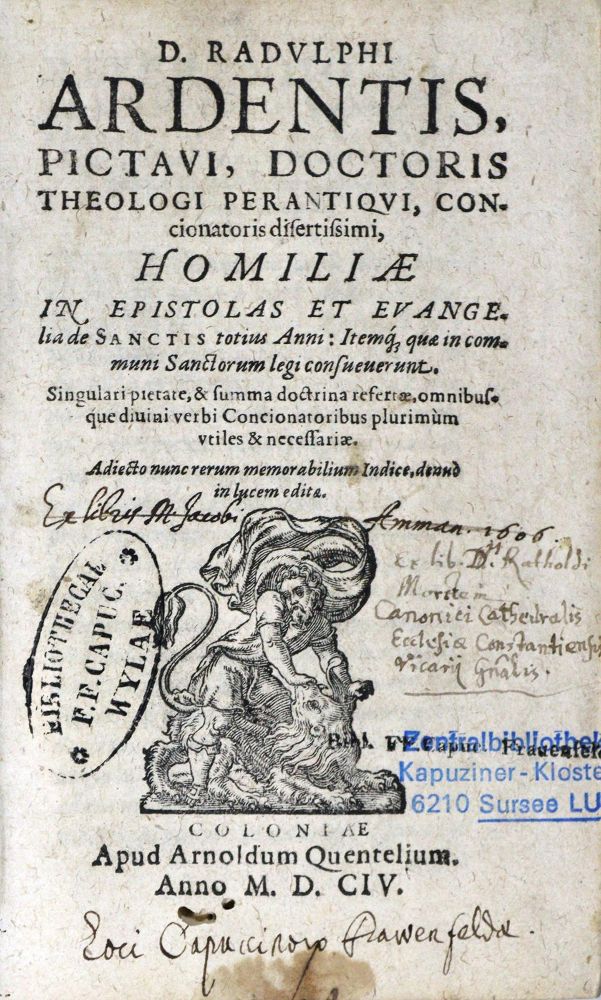 D. RADVLPHI
ARDENTIS,
PICTAVI, DOCTORIS
THEOLOGI PERANTIQVI, CON-
cionatoris disertissimi,
HOMILIÆ
IN EPISTOLAS ET EVANGE-
lia de SANCTIS totius Anni: Itemq́; quæ in com-
muni Sanctorum legi consueuerunt.
Singulari pietate, & summa doctrina refertæ, omnibus-
que diuini verbi Concionatoribus plurimùm
vtiles & necessariæ.
Adiecto nunc rerum memorabilium Indice, denuò
in lucem editæ.
Ex libris M Jacobi Amman. 1606.
Ex lib. D. Ratholdi
Morstein
Canonici Cathedralis
Ecclesiæ Constantiensis
Vicarij Gñalis.
BIBLIOTHECAE
F.F. CAPUC.
WYLAE
Bibl. FF Capuc. Frauenfeld
Zentralbibliothek
Kapuziner-Kloste
6210 Sursee LU
COLONIAE
Apud Arnoldum Quentelium.
Anno M. D. CIV.
Loci Capuccinorũ Frawenfeldæ.